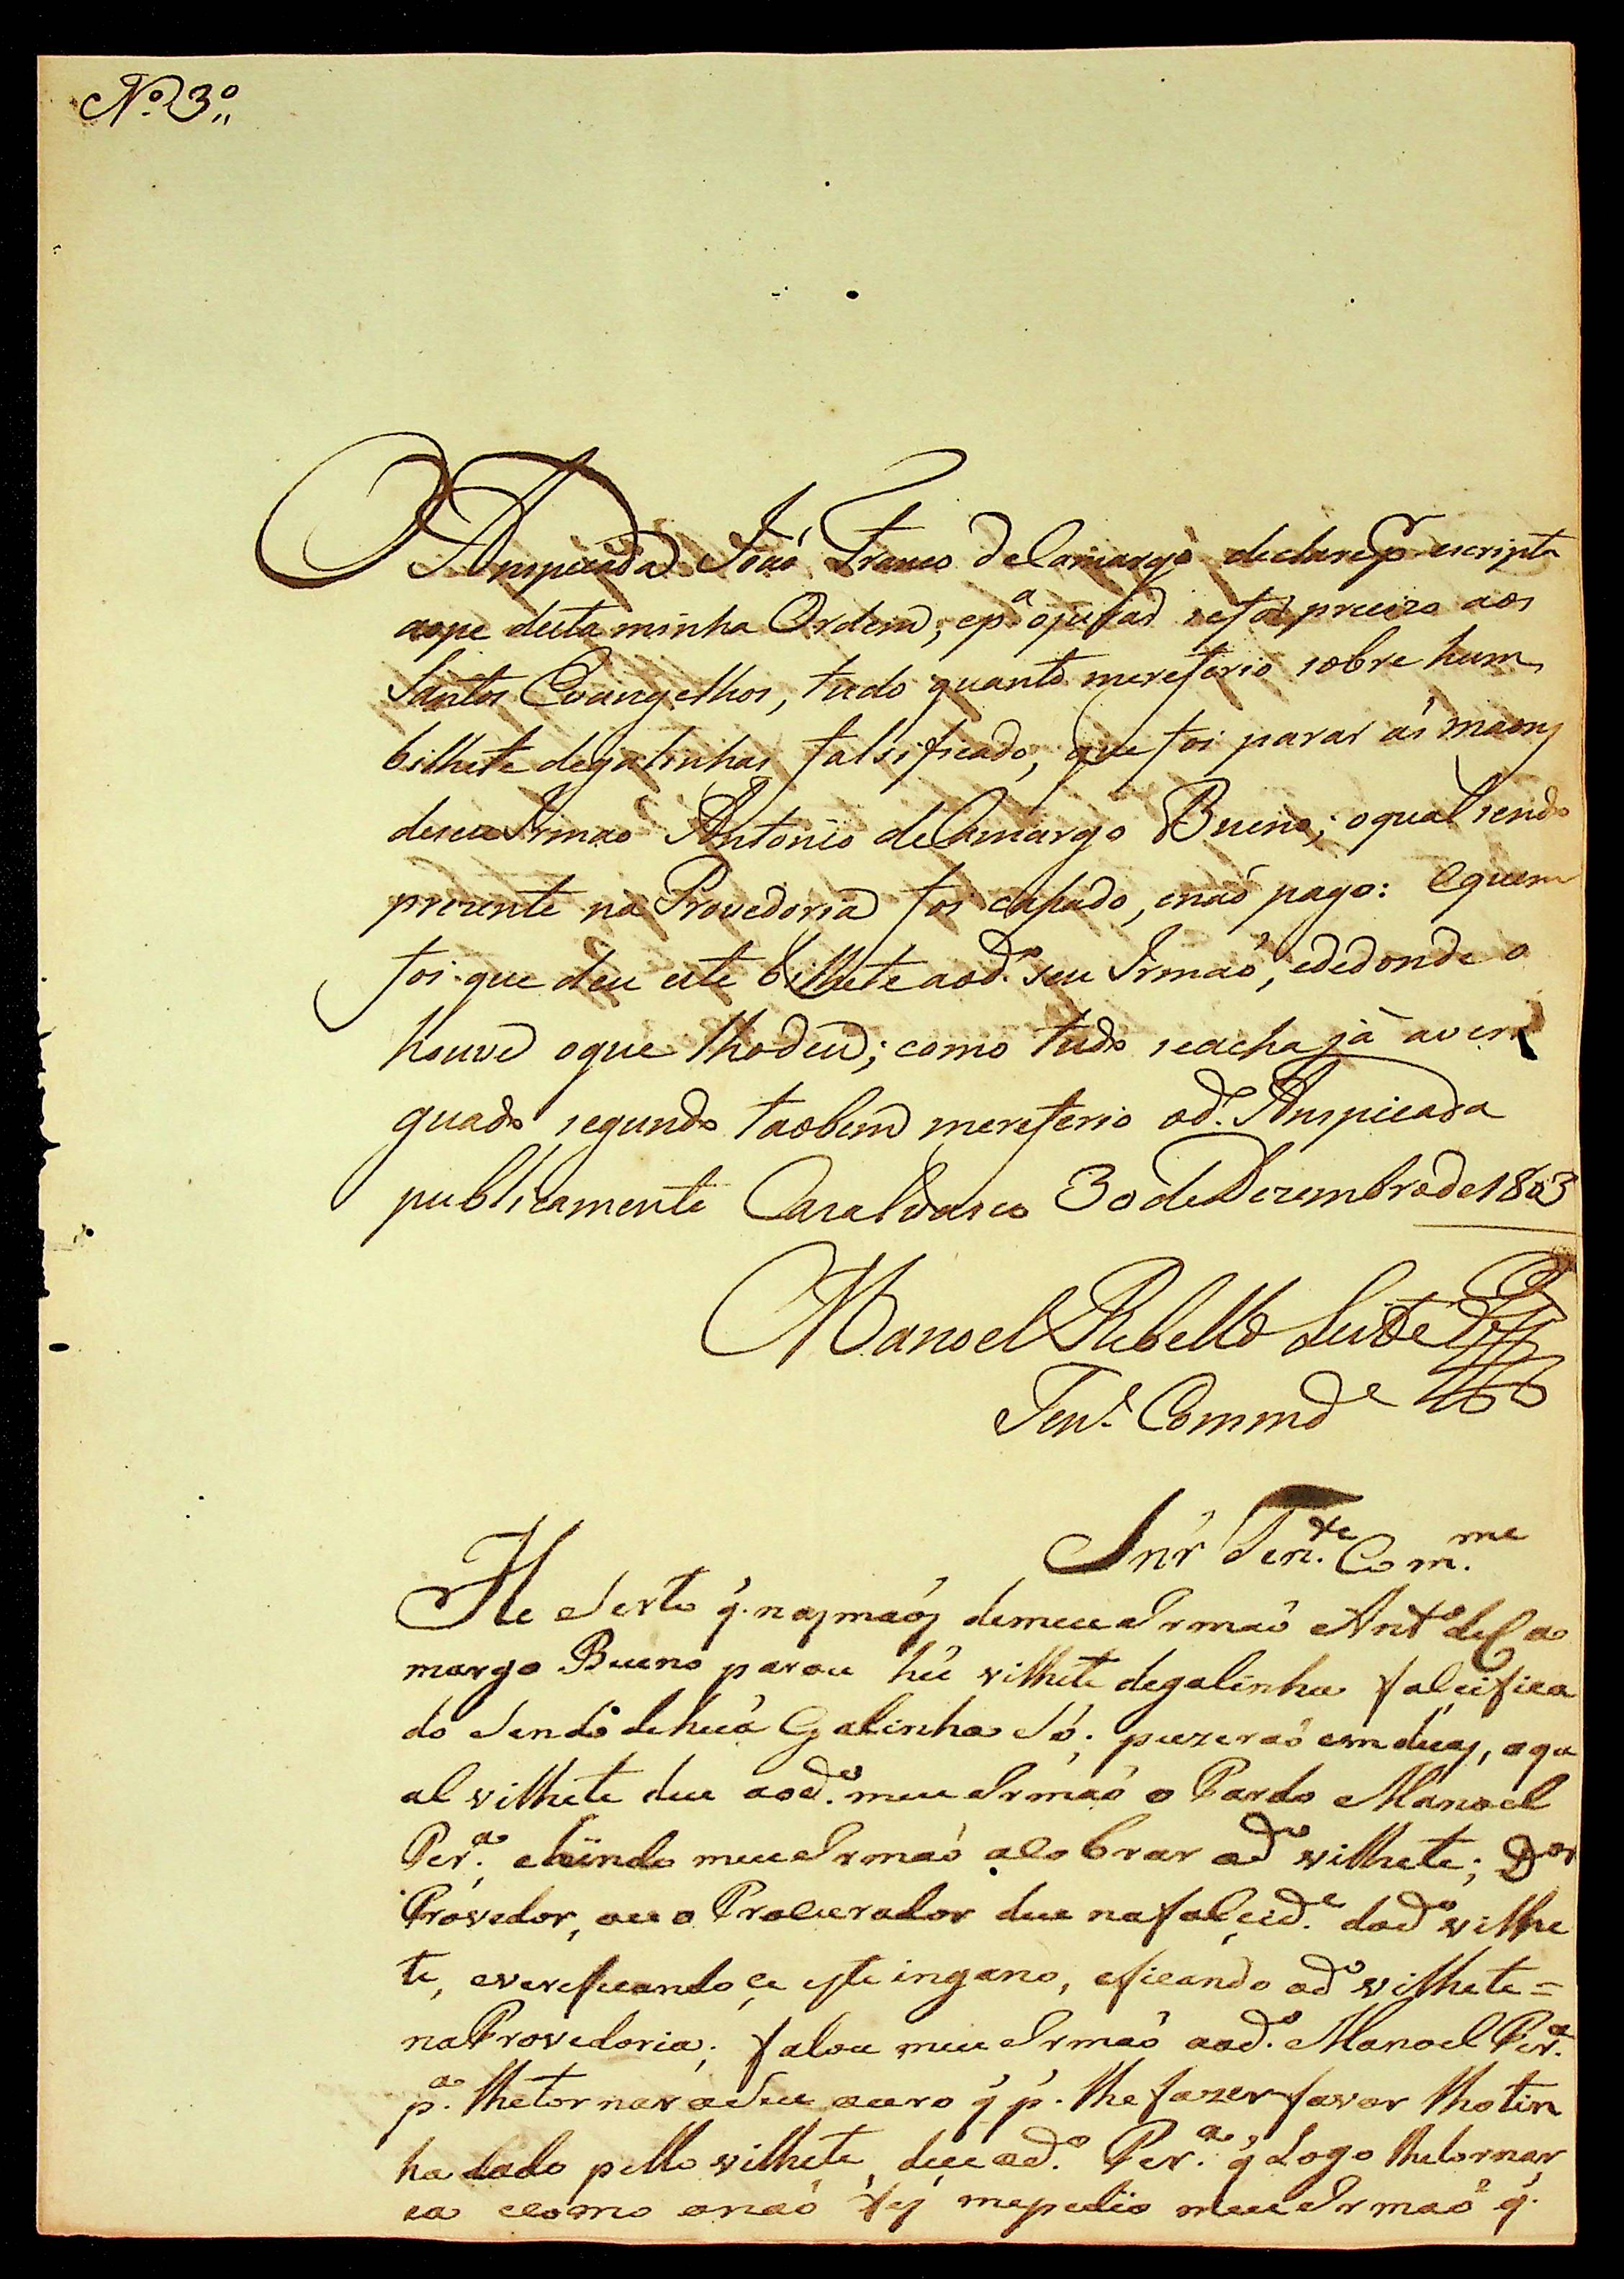 N.º 3.º
O Anspiçada João Franco de Camargo declare p.r escripto
ao pe desta minha Ordem, e p.ª o jurar se for precizo aos
Santos Evangelhos, tudo quanto mereferio sobre hum
bilhete degalinhas falsificado, que foi parar ás maons
deseu Irmao Antonio de Camargo Bueno; oqual sendo
prezente na Provedoria foi capado, enaó pago: Equem
foi que deu este bilhete aod.º seu Irmaó, ededonde o
houve oque lhodeu; como tudo seacha já averi
guado segundo taobem mereferio od.º Anspicada
publicamente Casalvasco 30 de Dezembro de 1803
Manoel Rebello Leite
Ten.e Commd.e
Snr' Ten.te Com.me
He Serto q̃. nas maos demeu Irmaó Ant.o de Ca
margo Bueno parou hú vilhete degalinha falcifica
do Sendo dehuá Galinha Só; puzeraó em duas, oqu
al vilhete deu aod.º meu Irmaó o Pardo Manoel
Per.ª, ehindo meu Irmaó acobrar od.º vilhete; D.or
Provedor, ou o Procurador deu nafalcid.e dod.º vilhe
te, everificandoçe este ingano, eficando od.º vilhete =
naProvedoria; falou meu Irmaó aod.º Manoel Per.ª
p.ª lhetornar oSeu ouro q̃ p.r lhefazer favor lhotin
ha dado pello vilhete, deu od.º Per.ª q̃ Logo lhetornar
ia ecomo onaó fes mepedio meu Irmaó q̃.